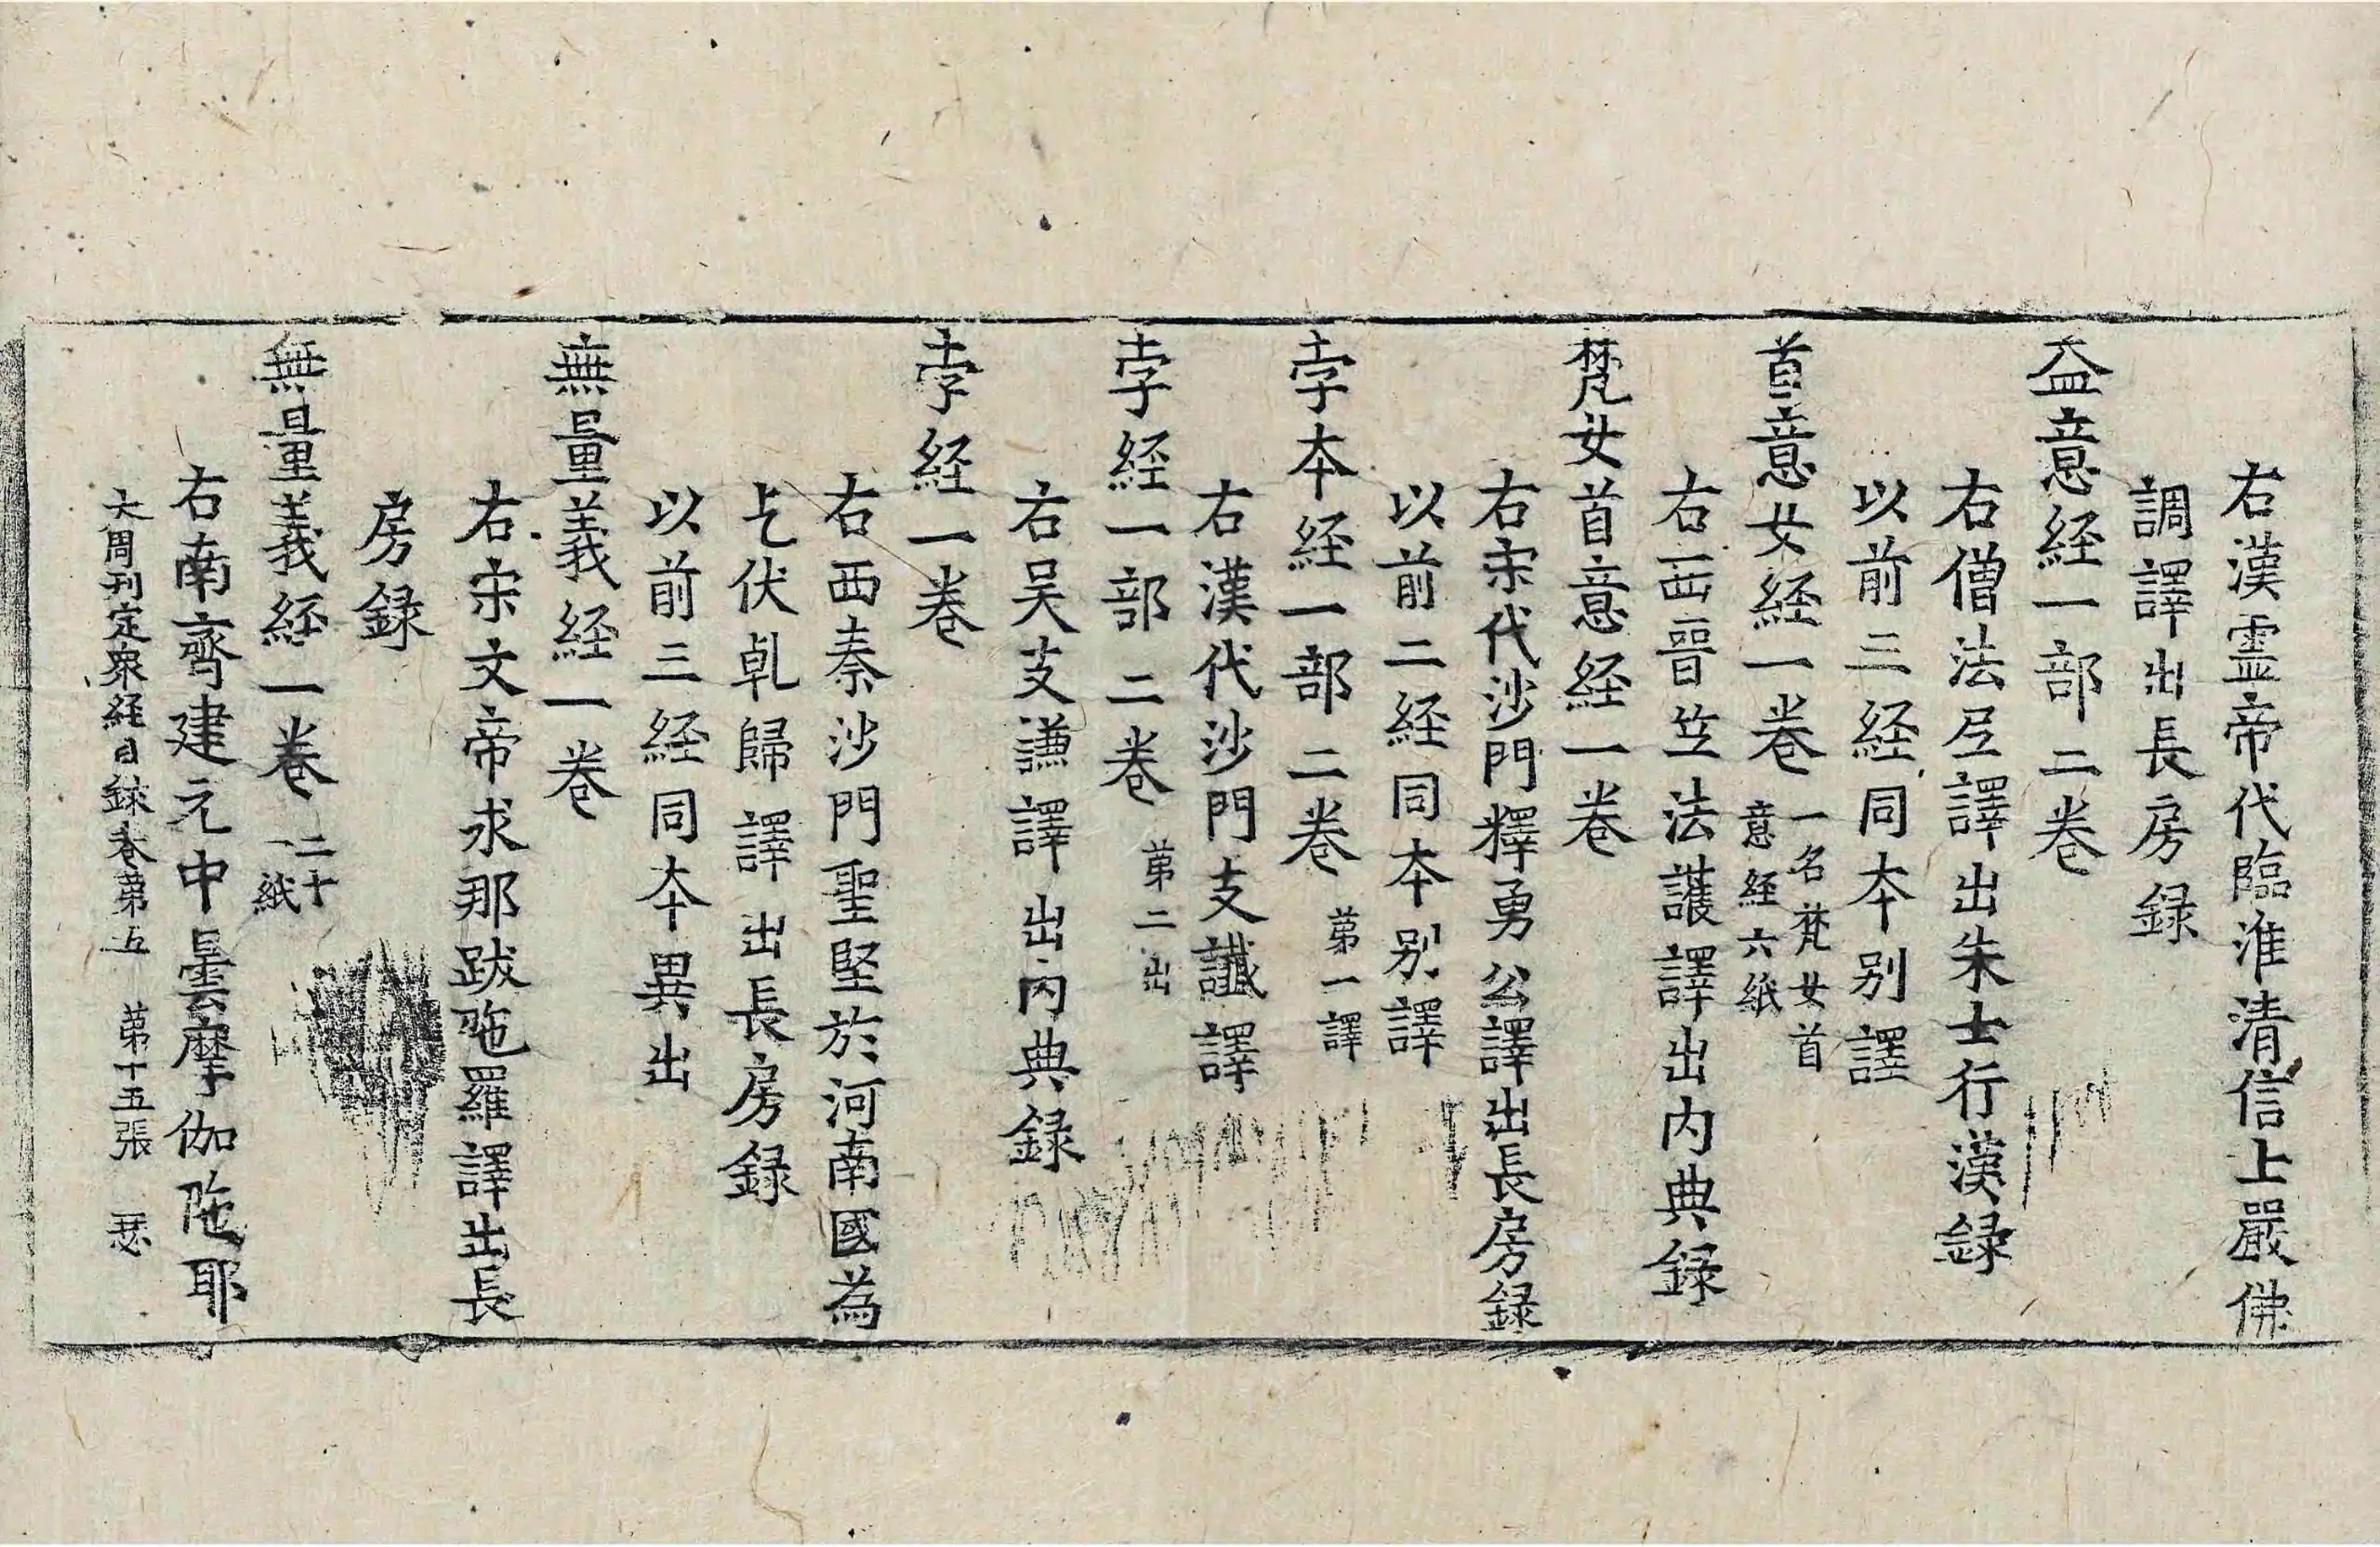 右漢霊帝代臨淮清信士嚴佛
調譯出長房録
益意経一部二卷
右僧法𡰱譯出朱士行漢録
以前三経同夲別譯
首意女経一卷 一名梵女首意経六紙
右西晉竺法護譯出内典録
梵女首意経一卷
右宋代沙門釋勇公譯出長房録
以前二経同夲別譯
孛夲経一部二卷 苐一譯
右漢代沙門支讖譯
孛経一部二卷 苐二出
右吴支謙譯出内典録
孛経一卷
右西秦沙門聖堅於河南國為
乞伏乹歸譯出長房録
以前三経同夲異出
無量義経一卷
右宋文帝求那跋陁羅譯出長
房録
無量義経一卷 二十一紙
右南齊建元中曇摩伽陁耶
大周刊定衆経目録卷苐五 苐十五張